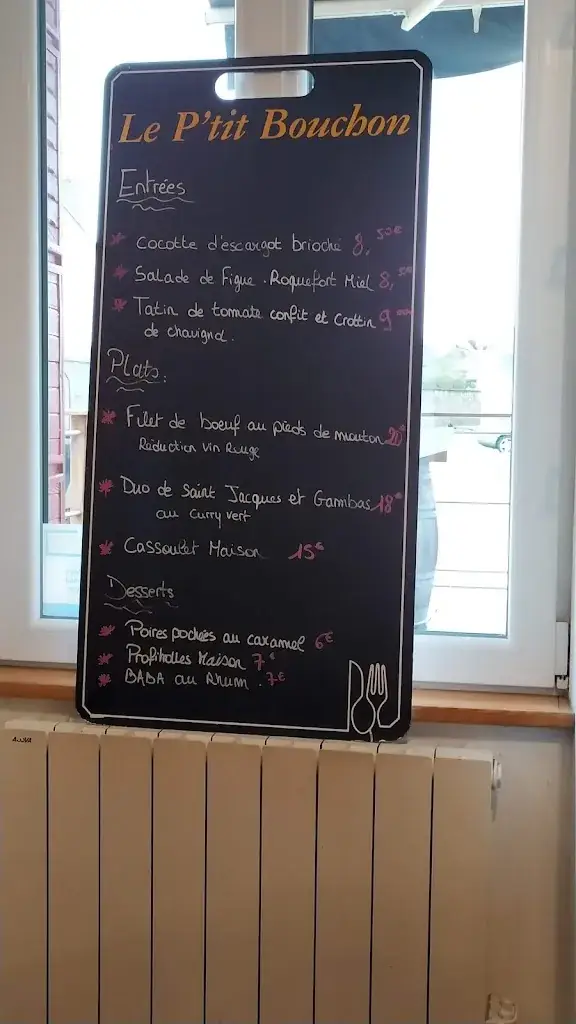 Le P'tit Bouchon
Entrées
* Cocotte d'escargot brioché 8,50€
* Salade de Figue. Roquefort Miel 8,50€
* Tatin de tomate confit et Crottin 9
de chavignol.
Plats.
* Filet de boeuf au pieds de mouton 20€
Réduction Vin Rouge
* Duo de Saint Jacques et Gambas 18€
au Curry vert
* Cassoulet Maison 15€
Desserts
* Poires pochées au caramel 6€
* Profitrolles Maison 7€
* BABA au Rhum. 7€